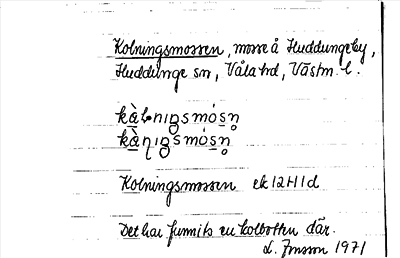 Kolningsmossen, mosse å Huddungeby,
Huddunge sn, Våla hd, Västm. l.
kȧ̀l·nıŋsmósn̥
kȧ̀ɳıŋsmósn̥
Kolningsmossen ek 12H1d
Det har funnits en kolbotten där.
L. Jonsson 1971